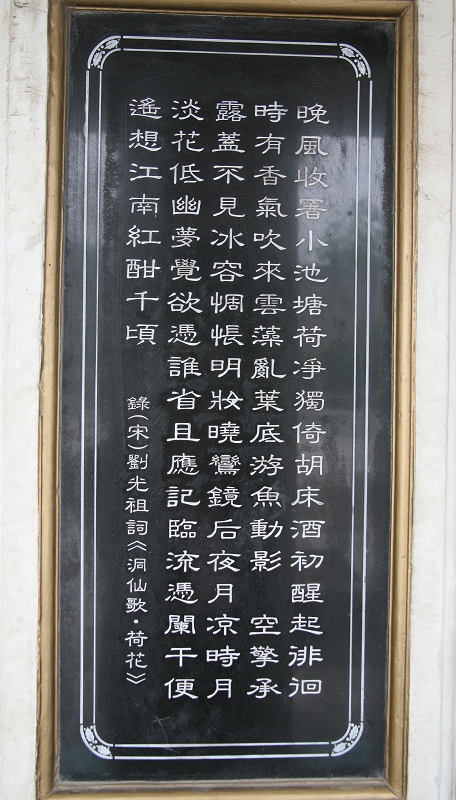 晚風收署小池塘荷凈獨倚胡床酒初醒起徘徊
時有香氣吹來雲藻亂葉底游魚動影　空擎承
露蓋不見冰容惆悵明妝曉鸞鏡后夜月凉時月
淡花低幽夢覺欲憑誰省且應記臨流憑闌干便
遙想江南紅酣千頃　錄(宋)劉光祖詞《洞仙歌·荷花》